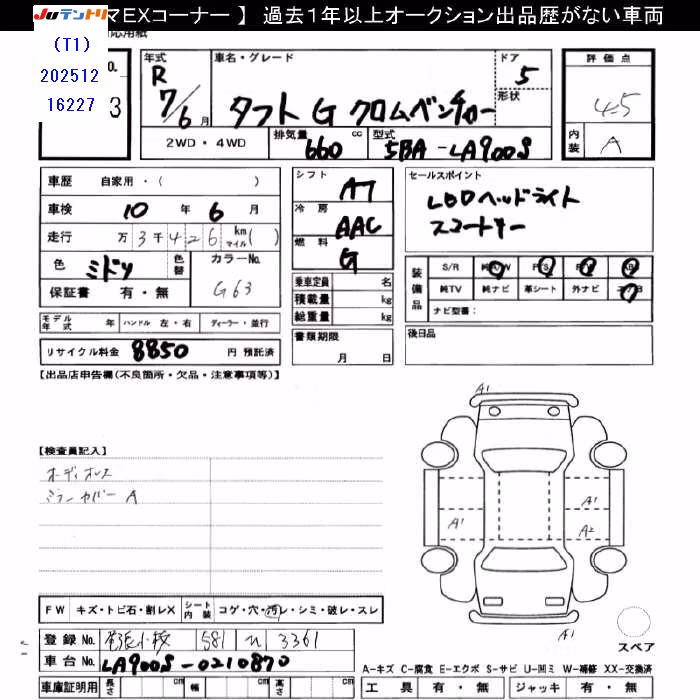 JUテントリ マEXコーナー 】 過去1年以上オークション出品歴がない車両
(T1)
202512
16227
3
年式 R 7/6月
車名・グレード タフト G クロムベンチャー
ドア 5
形状
評価点 4.5
内装 A
2WD・4WD
排気量 660 cc
型式 5BA-LA900S
車歴 自家用・( )
車検 10年 6月
走行 万3千426 km マイル( )
色 ミドリ
色替
カラーNo. G63
保証書 有・無
シフト AT
冷房 AAC
燃料 G
セールスポイント
LEDヘッドライト
スマートキー
乗車定員 名
積載量 kg
総重量 kg
装備品 S/R 純A/W P/S P/W
純TV 純ナビ 革シート 外ナビ
ナビ型番:
モデル年式 年 ハンドル 左・右 ディーラー・並行
書類期限 月 日
後日品
リサイクル料金 8850 円 預託済
【出品店申告欄(不良箇所・欠品・注意事項等)】
A1
【検査員記入】
オーディオレス
ミラーカバー A
A1
A1
A2
A1
スペア
FW キズ・トビ石・割レX
シート内装 コゲ・穴・汚レ・シミ・破レ・スレ
登録No. 581 3361
車台No. LA900S-0210870
A-キズ C-腐食 E-エクボ S-サビ U-凹ミ W-補修 XX-交換済
車庫証明用 長さ cm 幅 cm 高さ cm
工具 有・無 ジャッキ 有・無